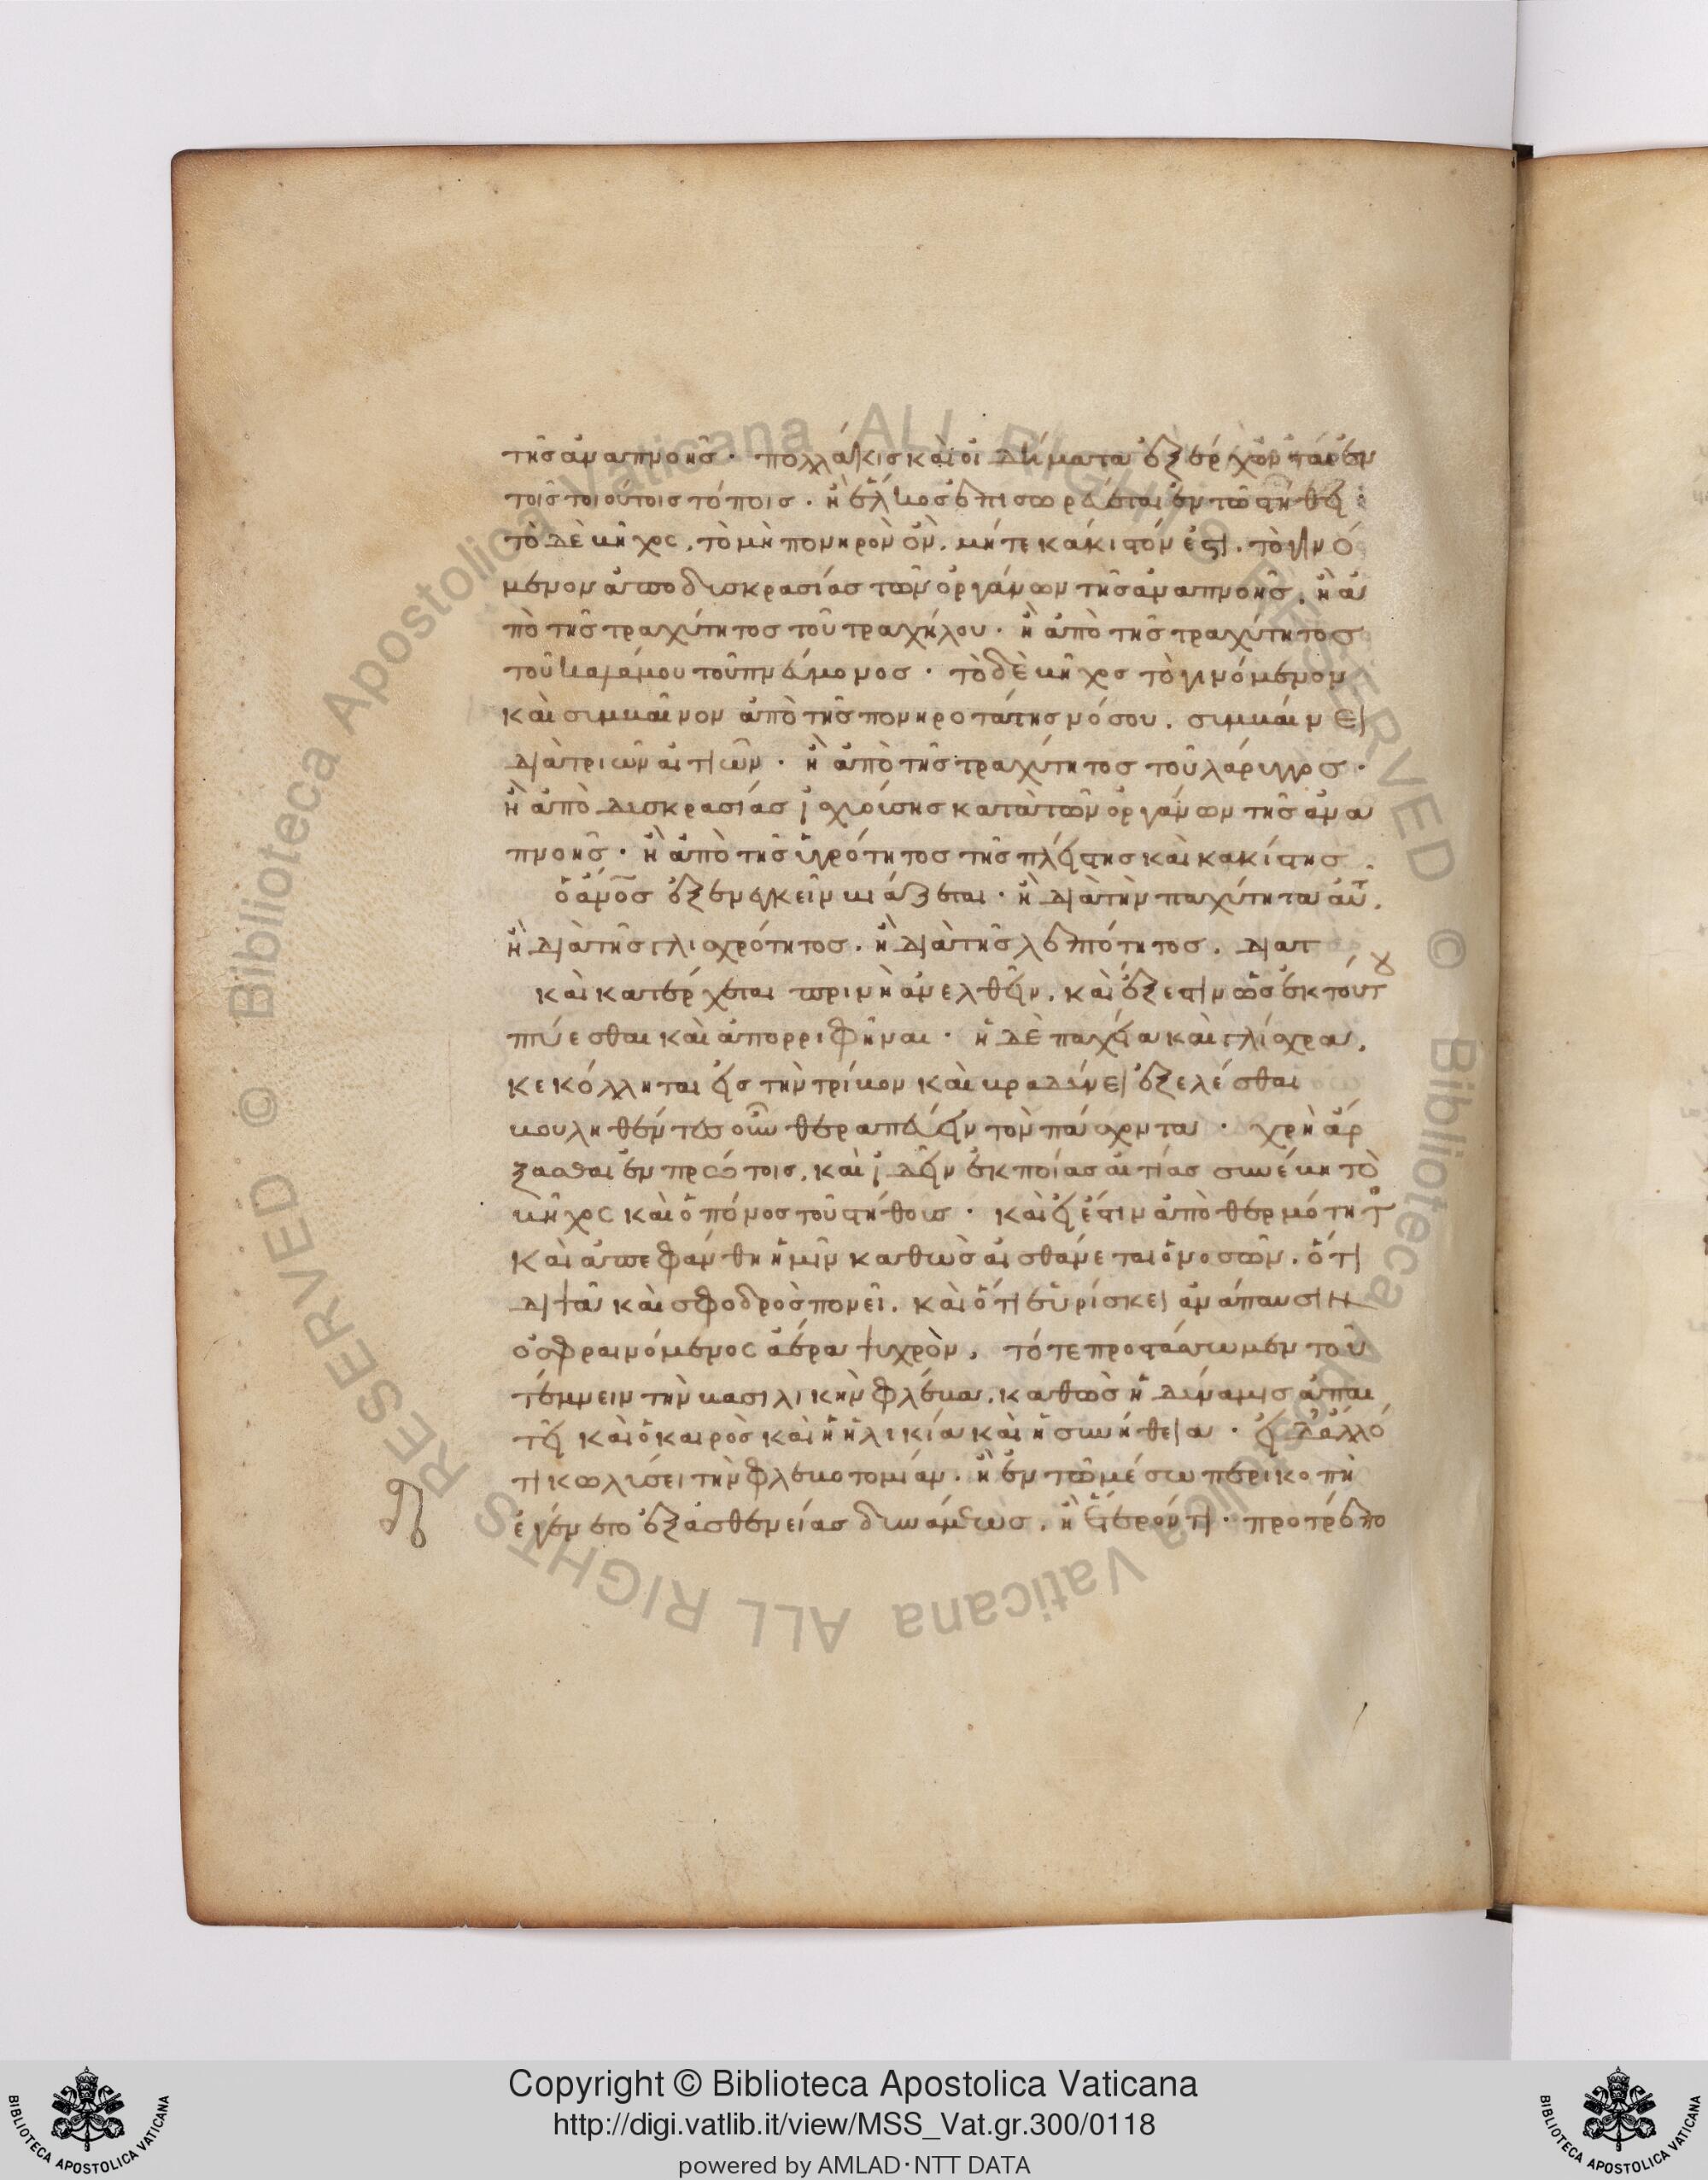 τῆς ἀναπνοῆς · πολλάκις καὶ οἰδήματα ἐξέρχονται ἐν
τοῖς τοιούτοις τόποις · ἢ ἕλκος ἐπισωρεύεται ἐν τῶ στήθει :
τὸ δὲ βῆχος, τὸ μὴ πονηρὸν ὂν, μήτε κάκιστόν ἐστι, τὸ γινό
μενον ἀπο δυσκρασίας τῶν ὀργάνων τῆς ἀναπνοῆς, ἢ ἀ
πὸ τῆς τραχύτητος τοῦ τραχήλου · ἢ ἀπὸ τῆς τραχύτητος
τοῦ καλάμου τοῦ πνεύμονος · τὸ δὲ βῆχος τὸ γινόμενον
καὶ συμβαῖνον ἀπὸ τῆς πονηροτάτης νόσου, συμβαίνει
διὰ τριῶν αἰτιῶν · ἢ ἀπὸ τῆς τραχύτητος τοῦ λάρυγγος ·
ἢ ἀπὸ δυσκρασίας ἰσχυούσης κατὰ τῶν ὀργάνων τῆς ἀνα
πνοῆς · ἢ ἀπὸ τῆς ὑγρότητος τῆς πλείστης καὶ κακίστης
ὁ ἄνος ἐξενεγκεῖν βιάζεται · ἢ διὰ τὴν παχύτητα αὐτ,
ἢ διὰ τῆς γλισχρότητος, ἢ διὰ τῆς λεπτότητος, διατ
καὶ κατέρχεται πρινὴ ἀνελθεῖν, καὶ ἔξεστιν ὡς ἐκ τούτου
πτύεσθαι καὶ ἀπορριφῆναι · ἡ δὲ παχεῖα καὶ γλίσχρα,
κεκόλληται εἰς τὴν τρίβον καὶ βραδύνει ἐξελέσθαι
βουληθέντες οὖν θεραπεύειν τὸν πάσχοντα · χρὴ ἄρ
ξασθαι ἐν πρώτοις, καὶ ἰδεῖν ἐκ ποίας αἰτίας συνέβη τὸ
βῆχος καὶ ὁ πόνος τοῦ στήθους · καὶ εἰ ἔστιν ἀπὸ θερμότητ
καὶ ἀπεφάνθη ἡμῖν καθὼς αἰσθάνεται ὁ νοσῶν, ὅτι
διψᾶ καὶ σφοδρὸς πονεῖ, καὶ ὅτι εὑρίσκει ἀνάπαυσιν
ὀσφραινόμενος ἀέρα ψυχρὸν, τότε προστάσσωμεν τοῦ
τέμνειν τὴν βασιλικὴν φλέβα, καθὼς ἡ δύναμις ἀπαι
τεῖ καὶ ὁ καιρὸς καὶ ἡ ἡλικία καὶ ἡ συνήθεια · εἰ δ' ἄλλό
τι κωλύσει τὴν φλεβοτομίαν, ἢ ἐν τῶ μέσω περικοπὴ
ἐγένετο ἐξ ἀσθενείας δυνάμεως, ἢ ἕτερόν τι · προτρέπο
Copyright © Biblioteca Apostolica Vaticana
http://digi.vatlib.it/view/MSS_Vat.gr.300/0118
powered by AMLAD·NTT DATA